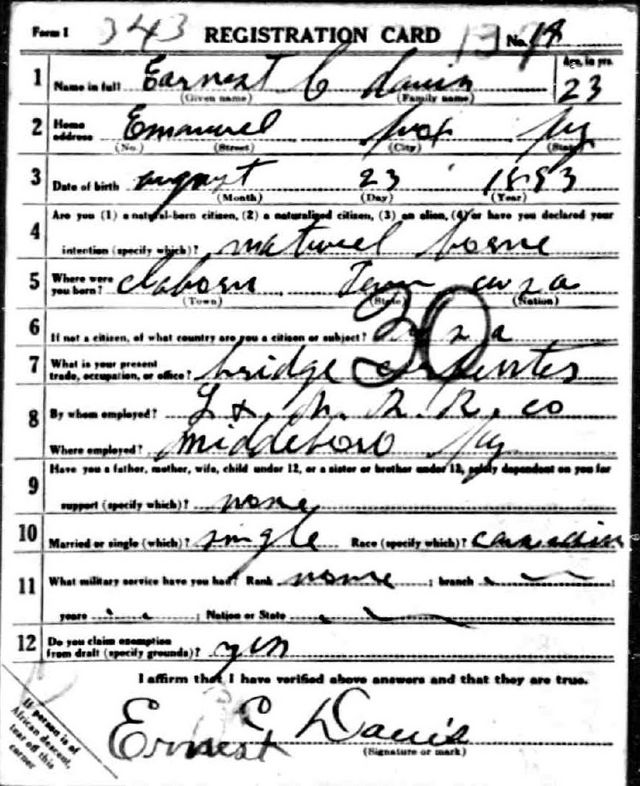 Form 1 343 REGISTRATION CARD No. 18
1 Name in full Earnest C Davis Age, in yrs. 23
(Given name) (Family name)
2 Home address Emanuel Knox Ky
(No.) (Street) (City) (State)
3 Date of birth august 23 1893
(Month) (Day) (Year)
4 Are you (1) a natural-born citizen, (2) a naturalized citizen, (3) an alien, (4) or have you declared your
intention (specify which)? born
5 Where were you born? Claborn Tenn usa
(Town) (State) (Nation)
6 If not a citizen, of what country are you a citizen or subject?
30
7 What is your present trade, occupation, or office? bridge
8 By whom employed? L + N. R. R. co
Where employed? Middlesboro Ky
9 Have you a father, mother, wife, child under 12, or a sister or brother under 12, solely dependent on you for
support (specify which)? none
10 Married or single (which)? single Race (specify which)?
11 What military service have you had? Rank none ; branch
years ; Nation or State
12 Do you claim exemption from draft (specify grounds)? yes
I affirm that I have verified above answers and that they are true.
Ernest C Davis
(Signature or mark)
If person is of
African descent,
tear off this
corner